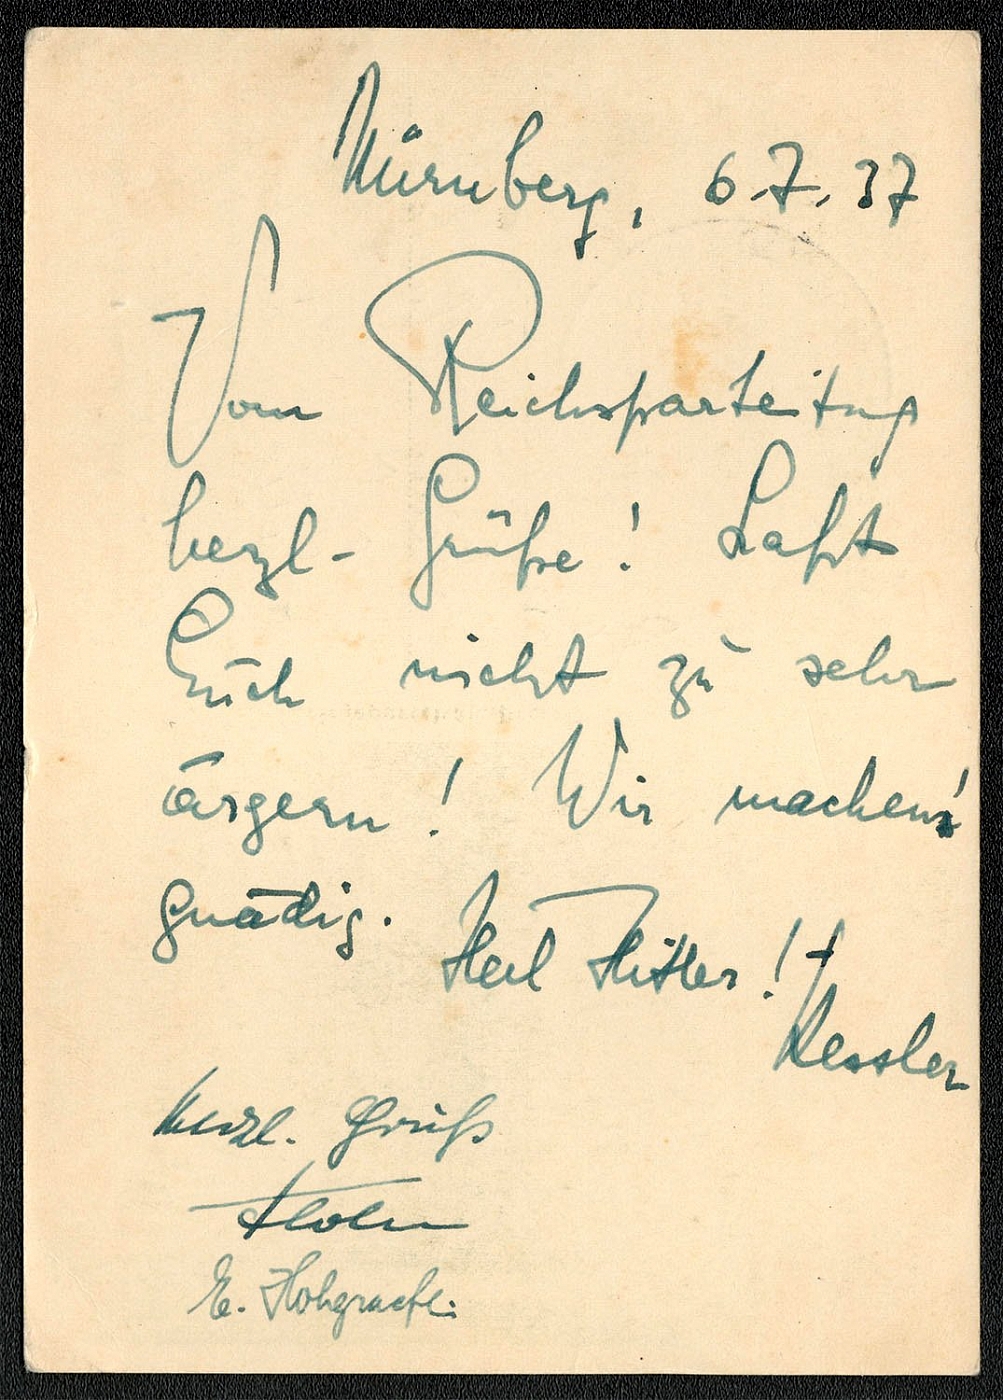 Nürnberg, 6.7.37
Vom Reichsparteitag
herzl. Grüße! Laßt
Euch nicht zu sehr
ärgern! Wir machen's
gnädig.
Heil Hitler!
Kessler
Herzl. Gruß